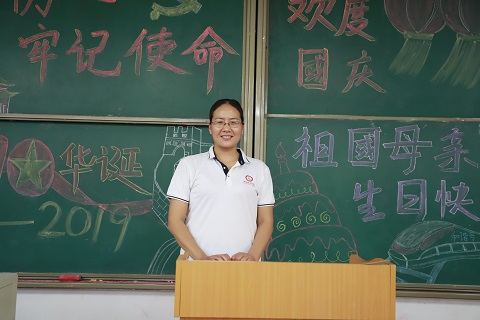 牢记使命
欢度
國庆
华诞
—2019
祖國母亲
生日快